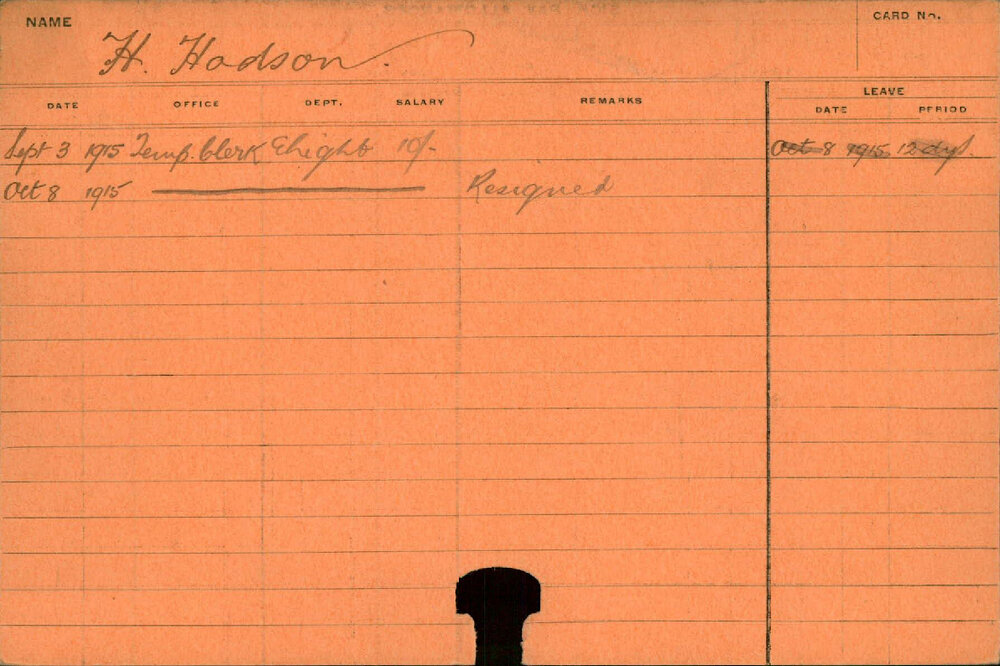 NAME
CARD No.
H. Hodson.
DATE OFFICE DEPT. SALARY REMARKS LEAVE
DATE PERIOD
Sept 3 1915 Temp. Clerk 10/- Oct 8 1915 12 dys.
Oct 8 1915 Resigned